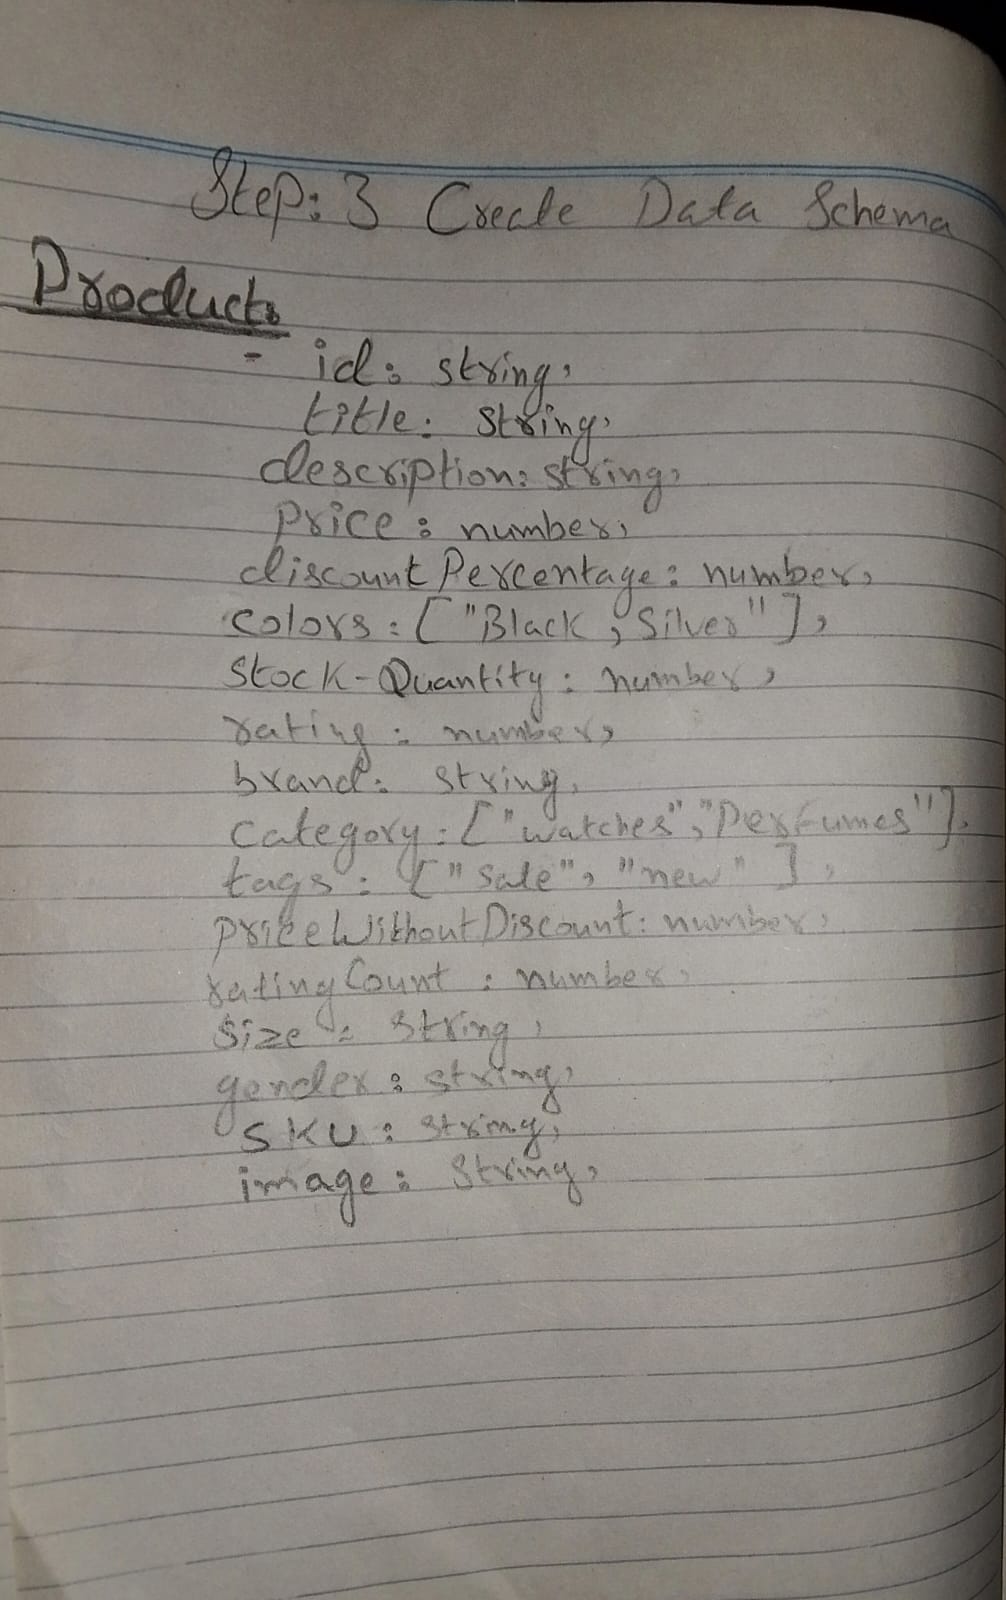 Step: 3 Create Data Schema
Product:
- id: string,
title: string,
description: string,
Price: number,
discountPercentage: number,
colors: ["Black, Silver"],
Stock-Quantity: number,
rating: number,
brand: string,
Category: ["watches", "Perfumes"],
tags: ["Sale", "new"],
priceWithoutDiscount: number,
ratingCount: number,
Size: String,
gender: string,
SKU: String,
image: String,